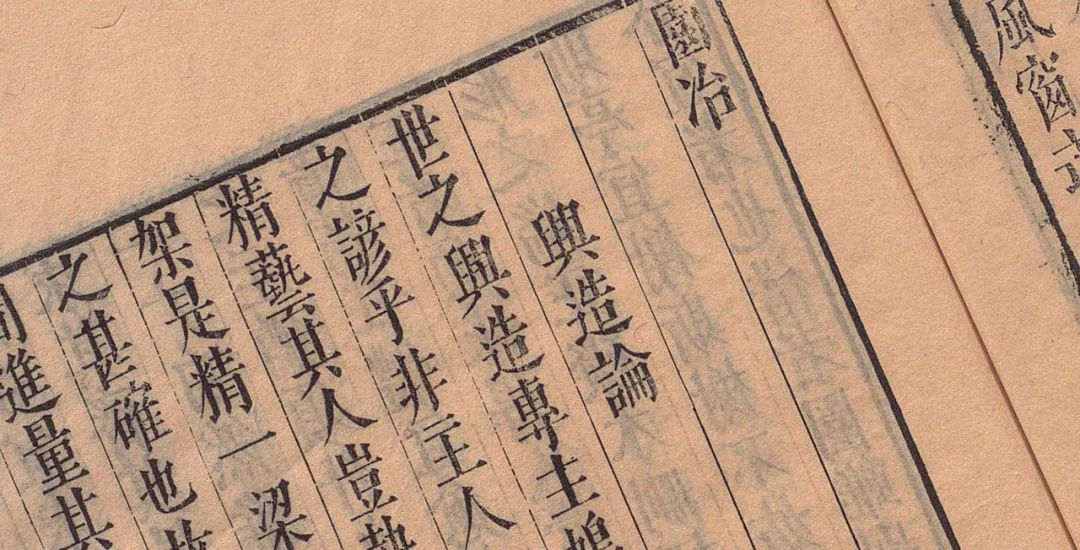 風窗
園冶
興造論
世之興造專主鳩
之諺乎非主人
精藝其人豈執
架是精一梁
之甚確也故
間進量其